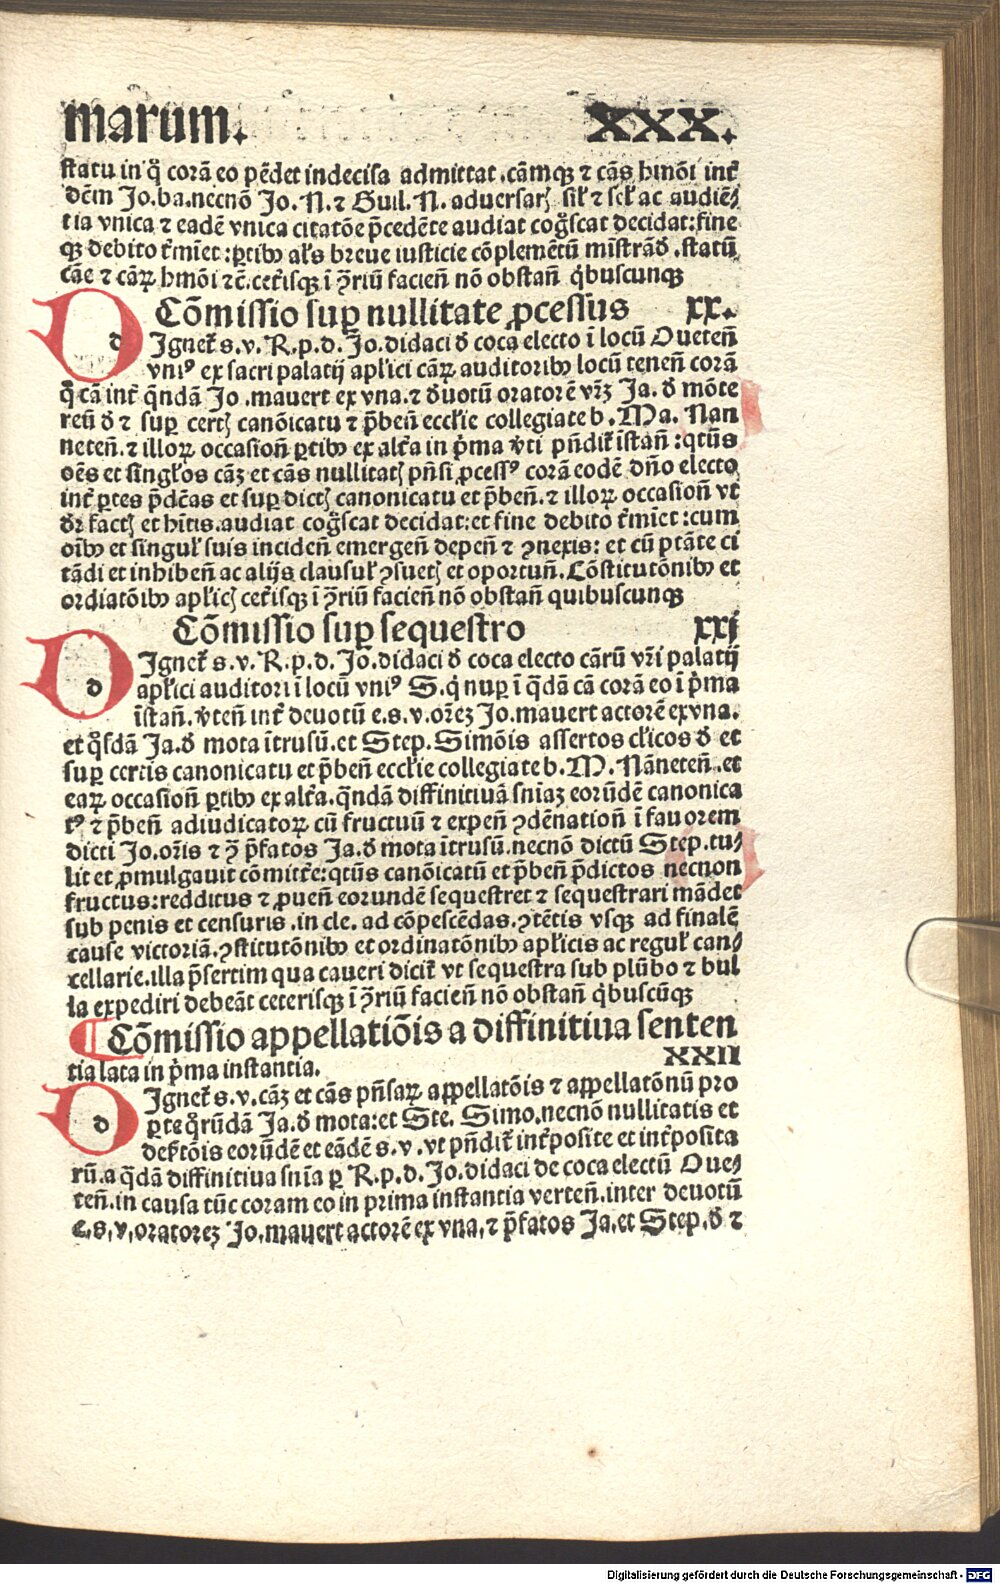 marum. XXX.
statu in q̊ corā eo pēdet indecisa admittat .cāmqꝫ ⁊ cās hmōi int̄
dēm Jo.ba.necnō Jo. N.⁊ Guil. N. aduersarꝭ sil̄r ⁊ sel̄r ac audiē⸗
tia vnica ⁊ eadē vnica citatōe p̄cedēte audiat cog̊scat decidat:fine
qꝫ debito t̄miet :ꝑtibꝰ al̄s breue iusticie cōplemētū mīstrād̄ .statū
cāe ⁊ cāꝝ hmōi ⁊c̄.cet̄isqꝫ ī ꝯriū facien̄ nō obstan̄ q̇buscunqꝫ
Cōmissio suꝑ nullitate ꝓcessus XX.
DJgnet̄ s.v. R.p.d. Jo.didaci d̄ coca electo ī locū Oueten̄
vniꝰ ex sacri palatij apl̄ici cāꝝ auditoribꝰ locū tenen̄ corā
q̊ cā int̄ q̄ndā Jo .mauert ex vna.⁊ d̄uotū oratorē vr̄ꝫ Ja. d̄ mōte
ren̄ d̄ ⁊ suꝑ certꝭ canōicatu ⁊ p̄ben̄ eccl̄ie collegiate b. Ma. Nan
neten̄.⁊ illoꝝ occasion̄ ꝑtibꝰ ex al̄ta in p̄ma v̄ti pn̄dit̄ īstan̄ :qt̄ūs
oēs et singl̄os cāꝫ et cās nullitatꝭ pn̄si ꝓcessꝰ corā eodē dn̄o electo
int̄ ꝑtes p̄dc̄as et suꝑ dictꝭ canonicatu et p̄ben̄.⁊ illoꝝ occasion̄ vt
dr̄ factꝭ et hītis.audiat cog̊scat decidat:et fine debito t̄miet :cum
oībꝰ et singul̄ suis inciden̄ emergen̄ depen̄ ⁊ ꝯnexis: et cū ptāte ci
tādi et inhiben̄ ac alijs clausul̄ ꝯsuetꝭ et oportun̄. Cōstitutōnibꝰ et
ordiatōibꝰ apl̄icꝭ cet̄isqꝫ ī ꝯriū facien̄ nō obstan̄ quibuscunqꝫ
Cōmissio suꝑ sequestro XXI
DJgnet̄ s.v. R.p.d. Jo.didaci d̄ coca electo cārū vr̄i palatij
apl̄ici auditori ī locū vniꝰ S.q̄ nuꝑ ī q̄dā cā corā eo ī p̄ma
īstan̄. v̄ten̄ int̄ deuotū e.s.v.or̄eꝫ Jo.mauert actorē ex vna.
et q̊sdā Ja.d̄ mota ītrusū.et Step. Simōis assertos cl̄icos d̄ et
suꝑ certis canonicatu et p̄ben̄ eccl̄ie collegiate b. M. Nāneten̄.et
eaꝝ occasion̄ ꝑtibꝰ ex al̄ta.q̄ndā diffinitiuā sn̄iaꝫ eorūdē canonica
tꝰ ⁊ p̄ben̄ adiudicatoꝝ cū fructuū ⁊ expen̄ ꝯdēnation̄ ī fauorem
dicti Jo.or̄is ⁊ ꝯ̄ p̄fatos Ja.d̄ mota ītrusū.necnō dictū Step.tu⸗
lit et ꝓmulgauit cōmitt̄e:qt̄ūs canōicatū et p̄ben̄ p̄dictos necnon
fructus:redditus ⁊ ꝓuen̄ eorundē sequestret ⁊ sequestrari mādet
sub penis et censuris .in cle. ad cōpescēdas.ꝯtētis vsqꝫ ad finalē
cause victoriā.ꝯstitutōnibꝰ et ordinatōnibꝰ apl̄icis ac regul̄ can⸗
cellarie.illa p̄sertim qua caueri dicit̄ vt sequestra sub plūbo ⁊ bul
la expediri debeāt ceterisqꝫ ī ꝯriū facien̄ nō obstan̄ q̇buscūqꝫ
¶ Cōmissio appellatiōis a diffinitiua senten
tia lata in p̄ma instantia. XXII
DJgnet̄ s.v.cāꝫ et cās pn̄saꝝ appellatōis ⁊ appellatōnū pro
ꝑte q̊rūdā Ja.d̄ mota:et Ste. Simo.necnō nullitatis et
defc̄tōis eorūdē et eādē s.v.vt pn̄dit̄ int̄posite et int̄posita
rū.a q̄dā diffinitiua sn̄ia ꝑ R.p.d. Jo.didaci de coca electū Oue⸗
ten̄.in causa tūc coram eo in prima instantia verten̄.inter deuotū
e.s.v.oratoreꝫ Jo.mauert actorē ex vna.⁊ p̄fatos Ja.et Step.d̄ ⁊
Digitalisierung gefördert durch die Deutsche Forschungsgemeinschaft - DFG